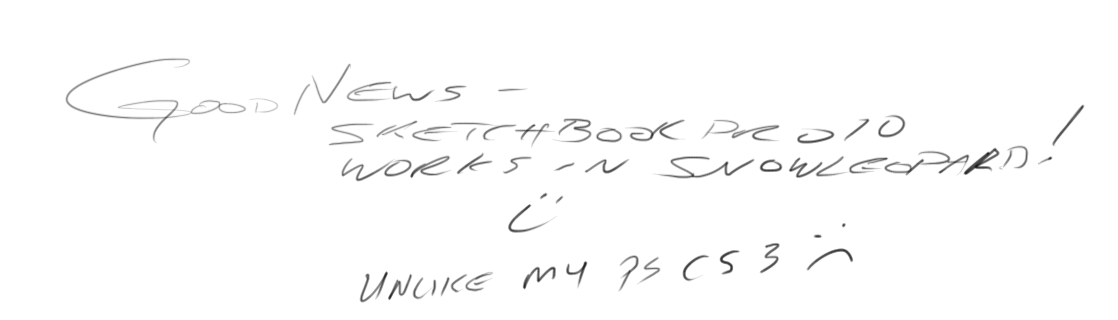 GOOD NEWS -
SKETCHBOOK PRO 10
WORKS IN SNOWLEOPARD!
UNLIKE MY PS CS3